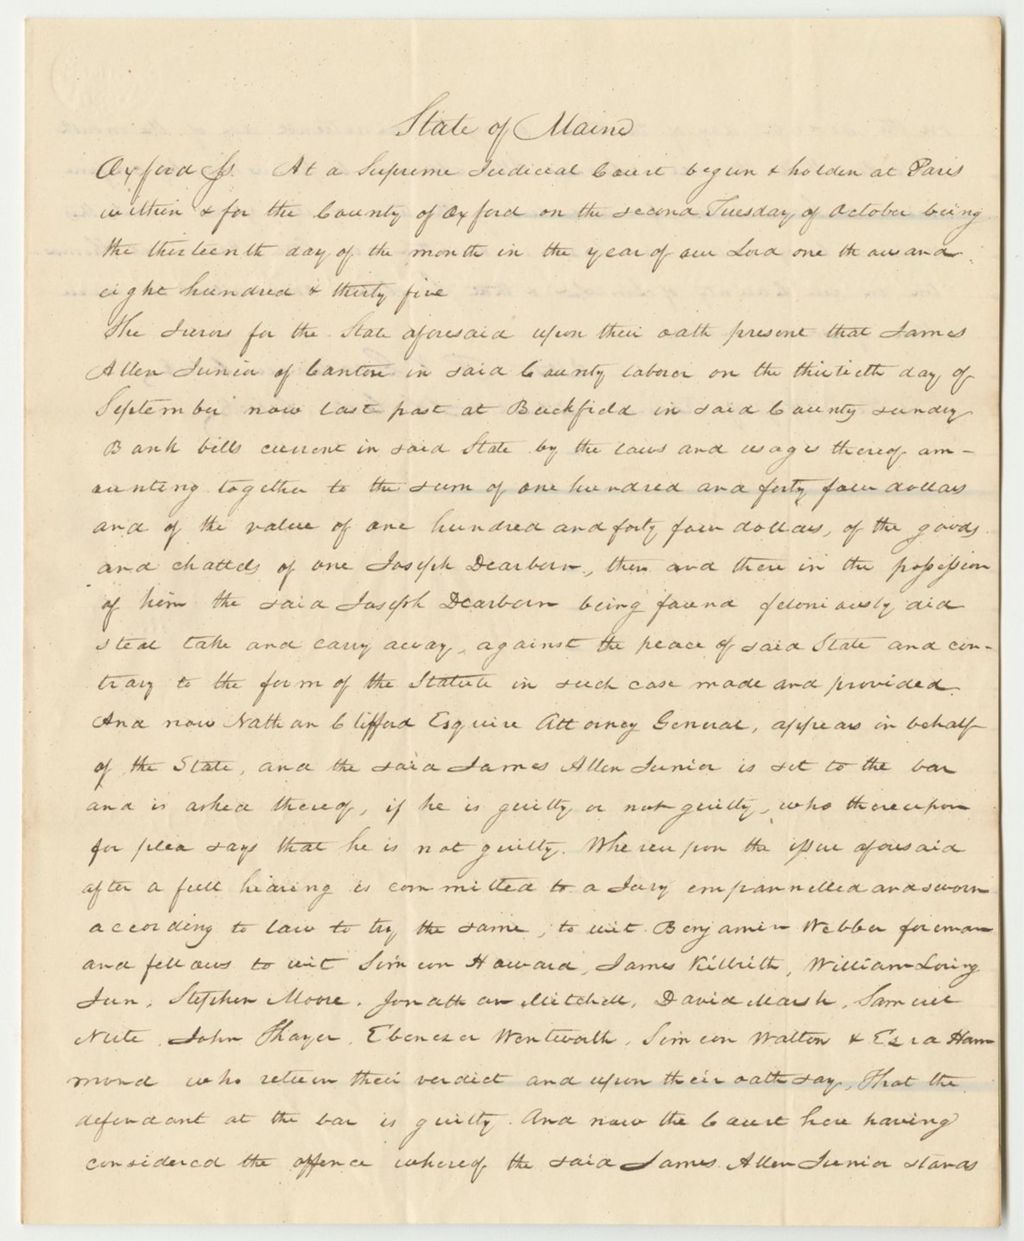 State of Maine
Oxford Ss. At a Supreme Judicial Court begun & holden at Paris
within & for the County of Oxford on the second Tuesday of October being
the thirteenth day of the month in the year of our Lord one thousand
eight hundred & thirty five
The Jurors for the State aforesaid upon their oath present that James
Allen Junior of Canton in said County laborer on the thirtieth day of
September now last past at Buckfield in said County sundry
Bank bills current in said State by the laws and usages thereof am-
ounting together to the sum of one hundred and forty four dollars
and of the value of one hundred and forty four dollars, of the goods
and chattels of one Joseph Dearborn, then and there in the possession
of him the said Joseph Dearborn being found feloniously did
steal take and carry away, against the peace of said State and con-
trary to the form of the Statute in such case made and provided.
And now Nathan Clifford Esquire Attorney General, appears in behalf
of the State, and the said James Allen Junior is set to the bar
and is asked thereof, if he is guilty or not guilty, who thereupon
for plea says that he is not guilty. Whereupon the issue aforesaid
after a full hearing is committed to a Jury empannelled and sworn
according to law to try the same, to wit Benjamin Webber foreman
and fellows to wit Simeon Howard, James Kilbrith, William Loring
Jun, Stephen Moore, Jonathan Mitchell, David Marsh, Samuel
Nute, John Thayer, Ebenezer Wentworth, Simeon Walton & Ezra Ham
mond who return their verdict and upon their oath say, That the
defendant at the bar is guilty. And now the Court here having
considered the offence whereof the said James Allen Junior stands